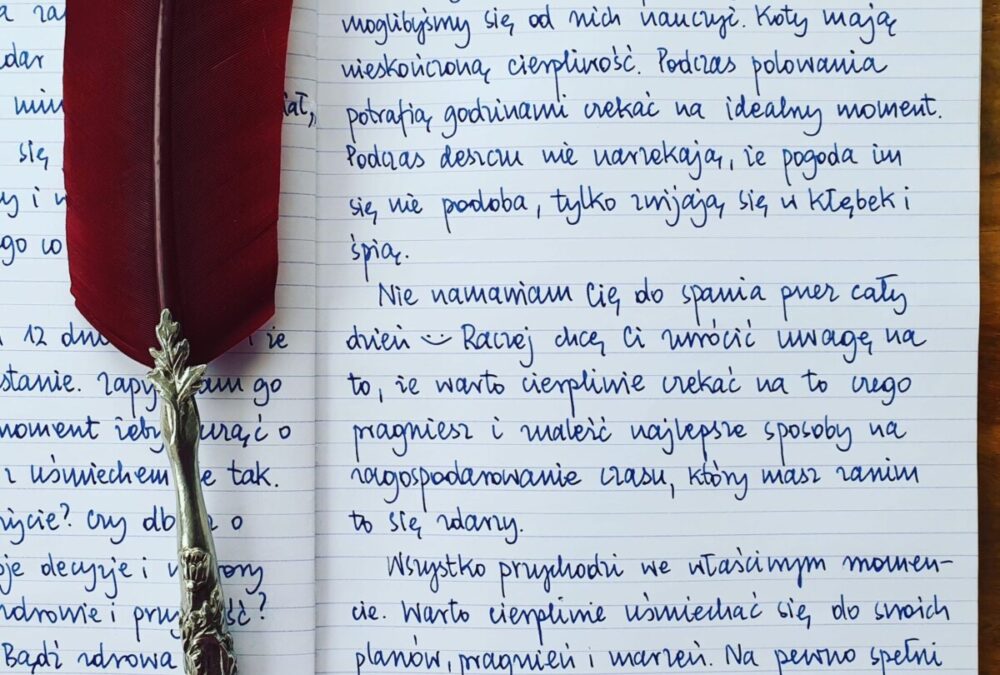 się
12 dni
stanie.
go
moment żeby
o
z uśmiechem
że tak.
życie? Czy
o
decyzje i
zdrowie i
Bądź zdrowa
moglibyśmy się od nich nauczyć. Koty mają
nieskończoną cierpliwość. Podczas polowania
potrafią godzinami czekać na idealny moment.
Podczas deszczu nie narzekają, że pogoda im
się nie podoba, tylko zwijają się w kłębek i
śpią.
Nie namawiam Cię do spania przez cały
dzień :) Raczej chcę Ci zwrócić uwagę na
to, że warto cierpliwie czekać na to czego
pragniesz i znaleść najlepsze sposoby na
zagospodarowanie czasu, który masz zanim
to się zdarzy.
Wszystko przychodzi we właściwym momen-
cie. Warto cierpliwie uśmiechać się do swoich
planów, pragnień i marzeń. Na pewno spełni